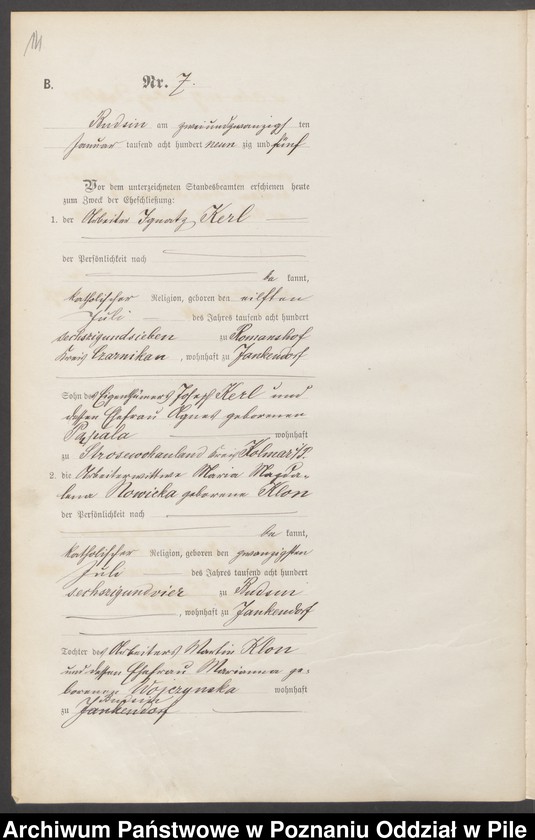 14
B. Nr. 7.
Budsin am zweiundzwanzigs ten
Januar tausend acht hundert neun zig und fünf
Vor dem unterzeichneten Standesbeamten erschienen heute
zum Zweck der Eheschließung:
1. der Arbeiter Ignatz Kerl
der Persönlichkeit nach
be kannt,
katholischer Religion, geboren den eilften
Juli des Jahres tausend acht hundert
sechszigundsieben zu Romanshof
Kreis Czarnikau, wohnhaft zu Jankendorf
Sohn des Eigenthümers Joseph Kerl und
dessen Ehefrau Agnes geborenen
wohnhaft
zu Strosewohauland Kreis Kolmar i/P.
2. die Arbeiterwittwe Maria Magda-
lena Nowicka geborene Klon
der Persönlichkeit nach
be kannt,
katholischer Religion, geboren den zwanzigsten
Juli des Jahres tausend acht hundert
sechszigundvier zu Budsin
, wohnhaft zu Jankendorf
Tochter des Arbeiters Martin Klon
und dessen Ehefrau Marianna ge-
borenen Wojczynska wohnhaft
Budsin
zu Jankendorf
Archiwum Państwowe w Poznaniu Oddział w Pile